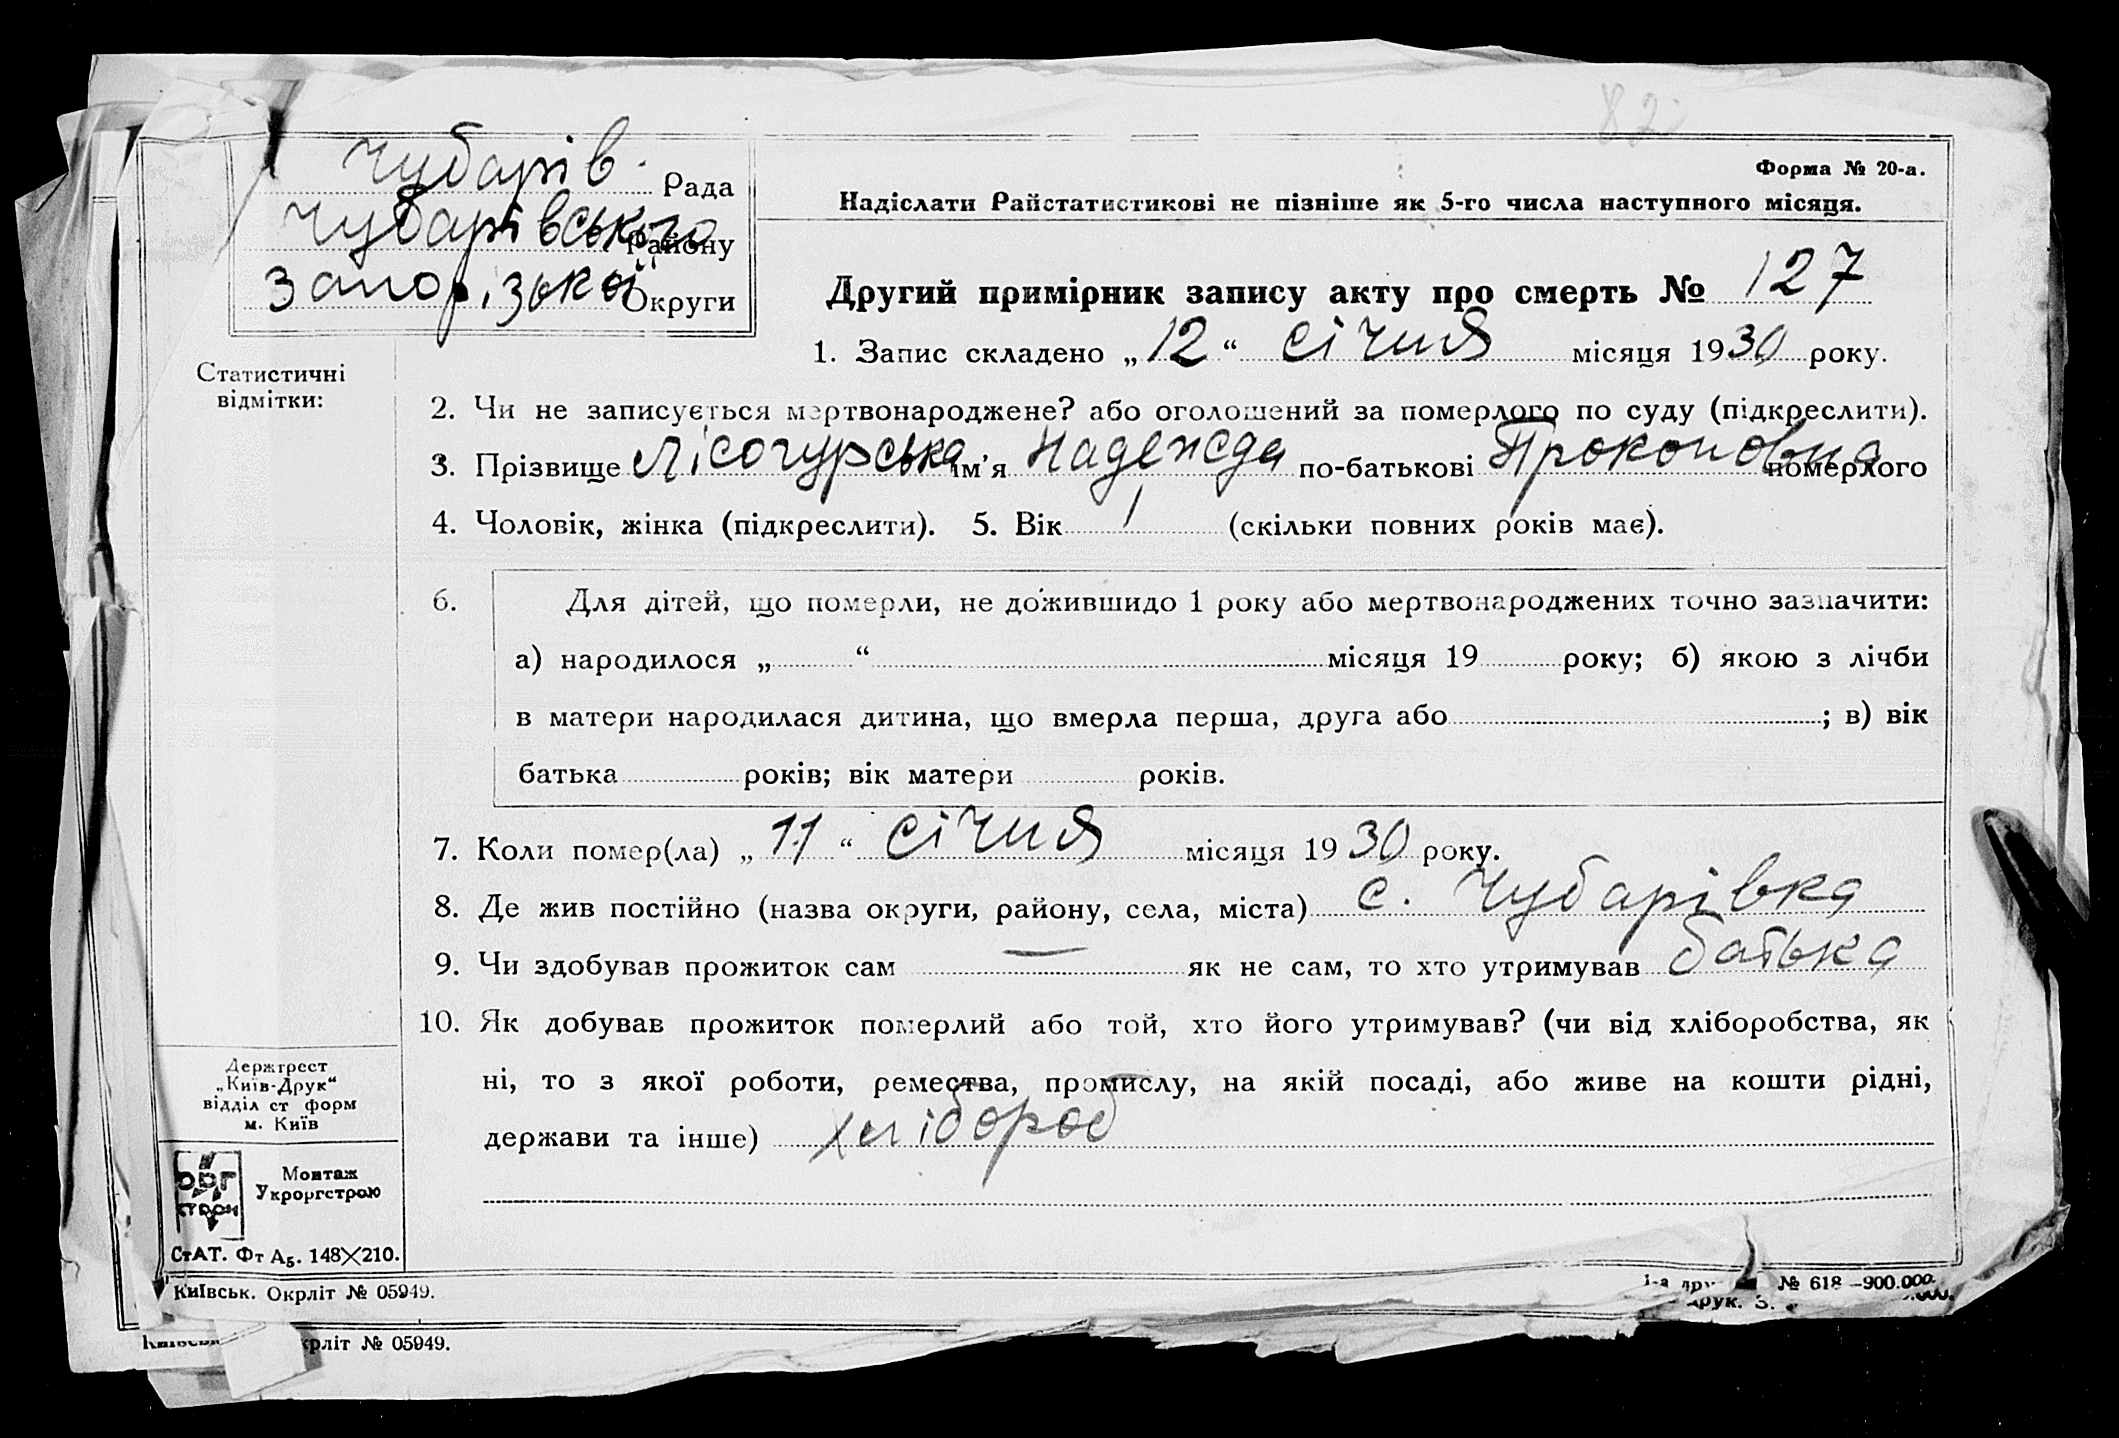 82
Чубарів. Рада
Чубарівського Району
Запорізької Округи
Форма № 20-а.
Надіслати Райстатистикові не пізніше як 5-го числа наступного місяця.
Другий примірник запису акту про смерть № 127
1. Запис складено „12“ січня місяця 1930 року.
Статистичні
відмітки:
2. Чи не записується мертвонароджене? або оголошений за померлого по суду (підкреслити).
3. Прізвище Лісогурська ім’я Надежда по-батькові Прокоповна померлого
4. Чоловік, жінка (підкреслити). 5. Вік 1 (скільки повних років має).
6. Для дітей, що померли, не доживши до 1 року або мертвонароджених точно зазначити:
а) народилося „ “ місяця 19 року; б) якою з лічби
в матери народилася дитина, що вмерла перша, друга або ; в) вік
батька років; вік матери років.
7. Коли помер(ла) „11“ січня місяця 1930 року.
8. Де жив постійно (назва округи, району, села, міста) с. Чубарівка
9. Чи здобував прожиток сам — як не сам, то хто утримував батька
10. Як добував прожиток померлий або той, хто його утримував? (чи від хліборобства, як
ні, то з якої роботи, ремества, промислу, на якій посаді, або живе на кошти рідні,
держави та інше) хлібороб
Держтрест
„Київ-Друк“
відділ ст форм
м. Київ
ОРГ
СТРОЙ
Монтаж
Укроргстрою
СтАТ. Фт А5. 148×210.
Київськ. Окрліт № 05949.
1-а дру № 618 –900.000.
друк. З. .000.
Київськ крліт № 05949.